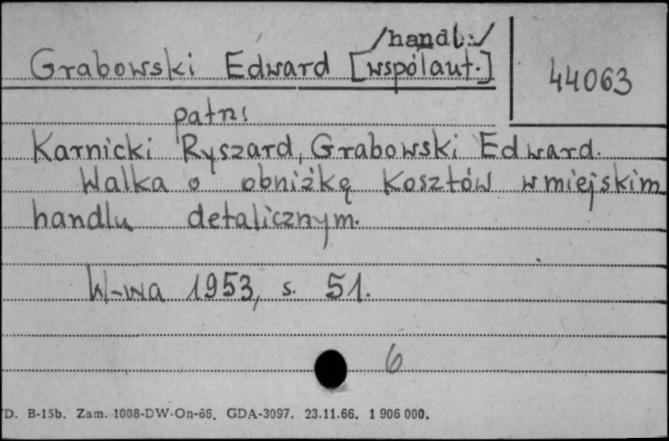 /handl./
Grabowski Edward [współaut.]
44063
patrz:
Karnicki Ryszard, Grabowski Edward.
Walka o obniżkę kosztów w miejskim
handlu detalicznym.
W-wa 1953, s. 51.
6
D. B-15b. Zam. 1008-DW-On-66. GDA-3097. 23.11.66. 1 906 000.